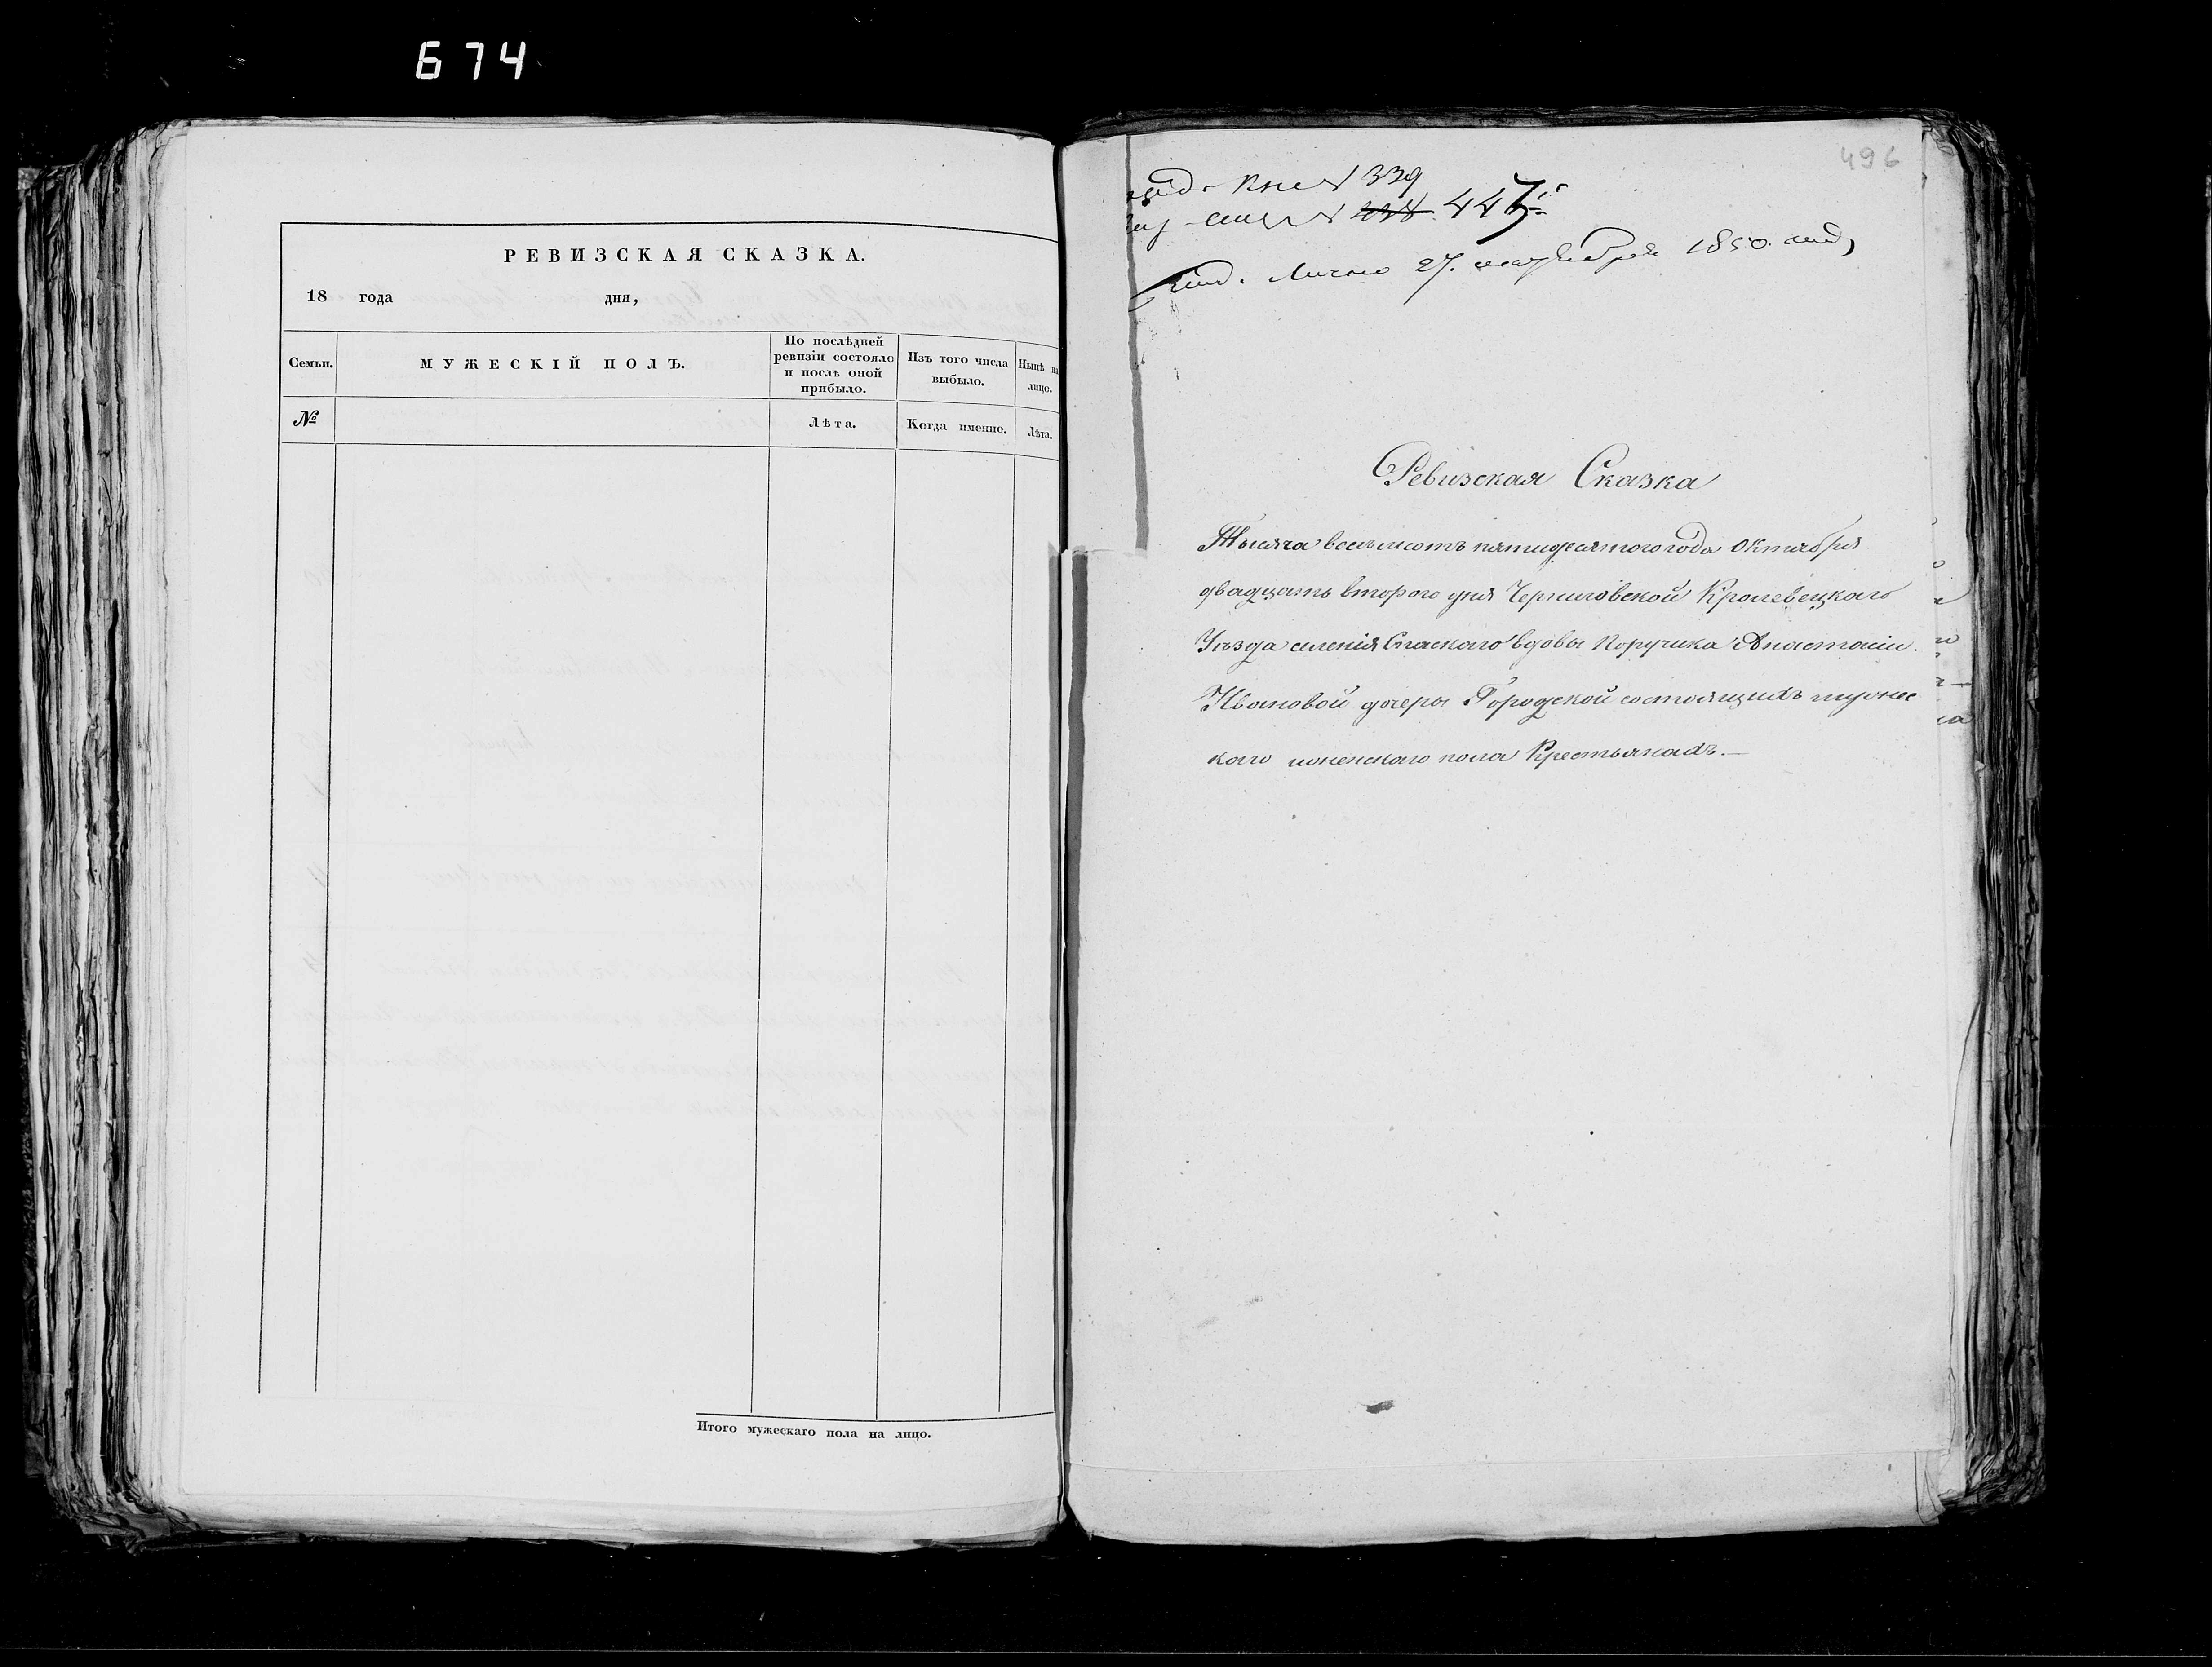 674
РЕВИЗСКАЯ СКАЗКА.
18 года дня,
Семьи.
МУЖЕСКІЙ ПОЛЪ.
По послѣдней
ревизіи состояло
и послѣ оной
прибыло.
Изъ того числа
выбыло.
Нынѣ на
лицо.
№
Лѣта.
Когда именно.
Лѣта.
Итого мужескаго пола на лицо.
496
№ 339
№ 447
Лично 27. октября 1850
Ревизская Сказка
Тысяча восемьсотъ пятидесятого года Октября
двадцать второго дня Черниговской Кролевецкаго
Уѣзда селенія Спаскаго вдовы Поручика Анастасіи
Ивановой дочеры Городской состоящихъ мужес
каго иженскаго пола Крестьянахъ.—